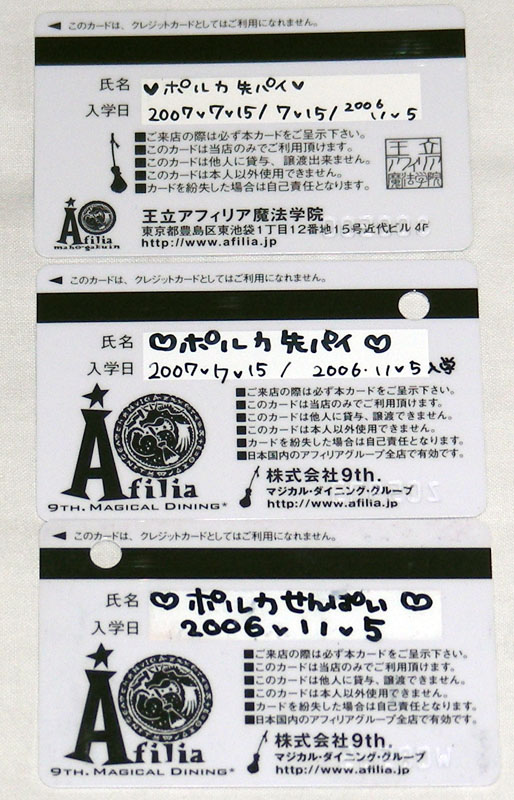 ◀ このカードは、クレジットカードとしてはご利用になれません。
氏名 ♥ポルカ先パイ♥
入学日 2007♥7♥15/7♥15/2006♥11♥5
■ご来店の際は必ず本カードをご呈示下さい。
■このカードは当店のみでご利用頂けます。
■このカードは他人に貸与、譲渡出来ません。
■このカードは本人以外使用できません。
■カードを紛失した場合は自己責任となります。
王立
アフィリア
魔法学院
Afilia
maho-gakuin
王立アフィリア魔法学院
東京都豊島区東池袋1丁目12番地15号近代ビル 4F
http://www.afilia.jp
◀ このカードは、クレジットカードとしてはご利用になれません。
氏名 ♡ポルカ先パイ♡
入学日 2007♥7♥15 / 2006・11♥5入学
■ご来店の際は必ず本カードをご呈示下さい。
■このカードは当店のみでご利用頂けます。
■このカードは他人に貸与、譲渡できません。
■このカードは本人以外使用できません。
■カードを紛失した場合は自己責任となります。
■日本国内のアフィリアグループ全店で有効です。
Afilia
9TH. MAGICAL DINING*
株式会社9th.
マジカル・ダイニング・グループ
http://www.afilia.jp
◀ このカードは、クレジットカードとしてはご利用になれません。
氏名 ♡ポルカせんぱい♡
入学日 2006♥11♥5
■ご来店の際は必ず本カードをご呈示下さい。
■このカードは当店のみでご利用頂けます。
■このカードは他人に貸与、譲渡できません。
■このカードは本人以外使用できません。
■カードを紛失した場合は自己責任となります。
■日本国内のアフィリアグループ全店で有効です。
Afilia
9TH. MAGICAL DINING*
株式会社9th.
マジカル・ダイニング・グループ
http://www.afilia.jp